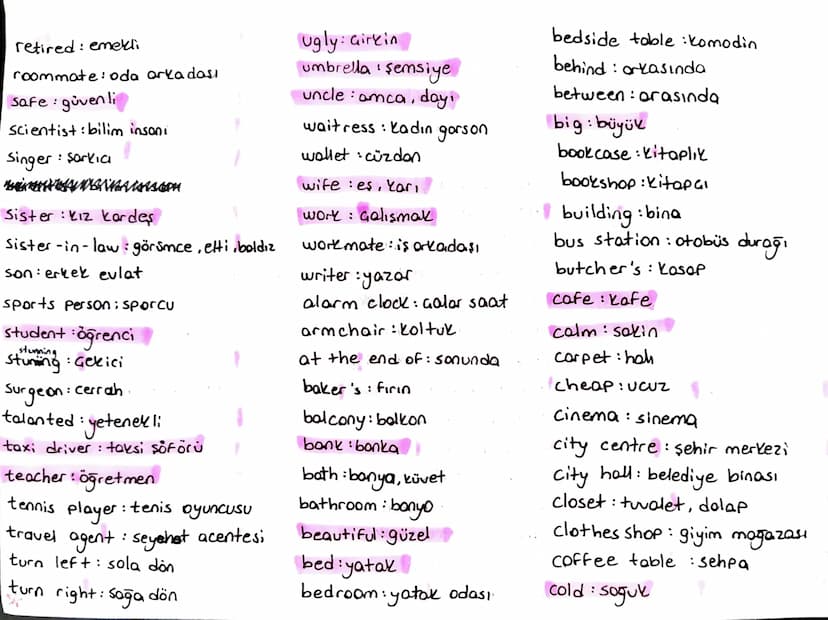 retired : emekli
roommate : oda arkadası
safe : güvenli
scientist : bilim insanı
singer : şarkıcı
sister : kız kardeş
sister-in-law : görümce, elti, baldız
son : erkek evlat
sports person : sporcu
student : öğrenci
stuming : çekici
surgeon : cerrah
talanted : yetenekli
taxi driver : taksi şöförü
teacher : öğretmen
tennis player : tenis oyuncusu
travel agent : seyehat acentesi
turn left : sola dön
turn right : sağa dön
ugly : çirkin
umbrella : şemsiye
uncle : amca, dayı
waitress : kadın garson
wallet : cüzdan
wife : eş, karı
work : çalışmak
workmate : iş arkadaşı
writer : yazar
alarm clock : çalar saat
armchair : koltuk
at the end of : sonunda
baker's : fırın
balcony : balkon
bank : banka
bath : banya, küvet
bathroom : banyo
beautiful : güzel
bed : yatak
bedroom : yatak odası
bedside table : komodin
behind : arkasında
between : arasında
big : büyük
bookcase : kitaplık
bookshop : kitapçı
building : bina
bus station : otobüs durağı
butcher's : kasap
cafe : kafe
calm : sakin
carpet : halı
cheap : ucuz
cinema : sinema
city centre : şehir merkezi
city hall : belediye binası
closet : tuvalet, dolap
clothes shop : giyim mağazası
coffee table : sehpa
cold : soğuk